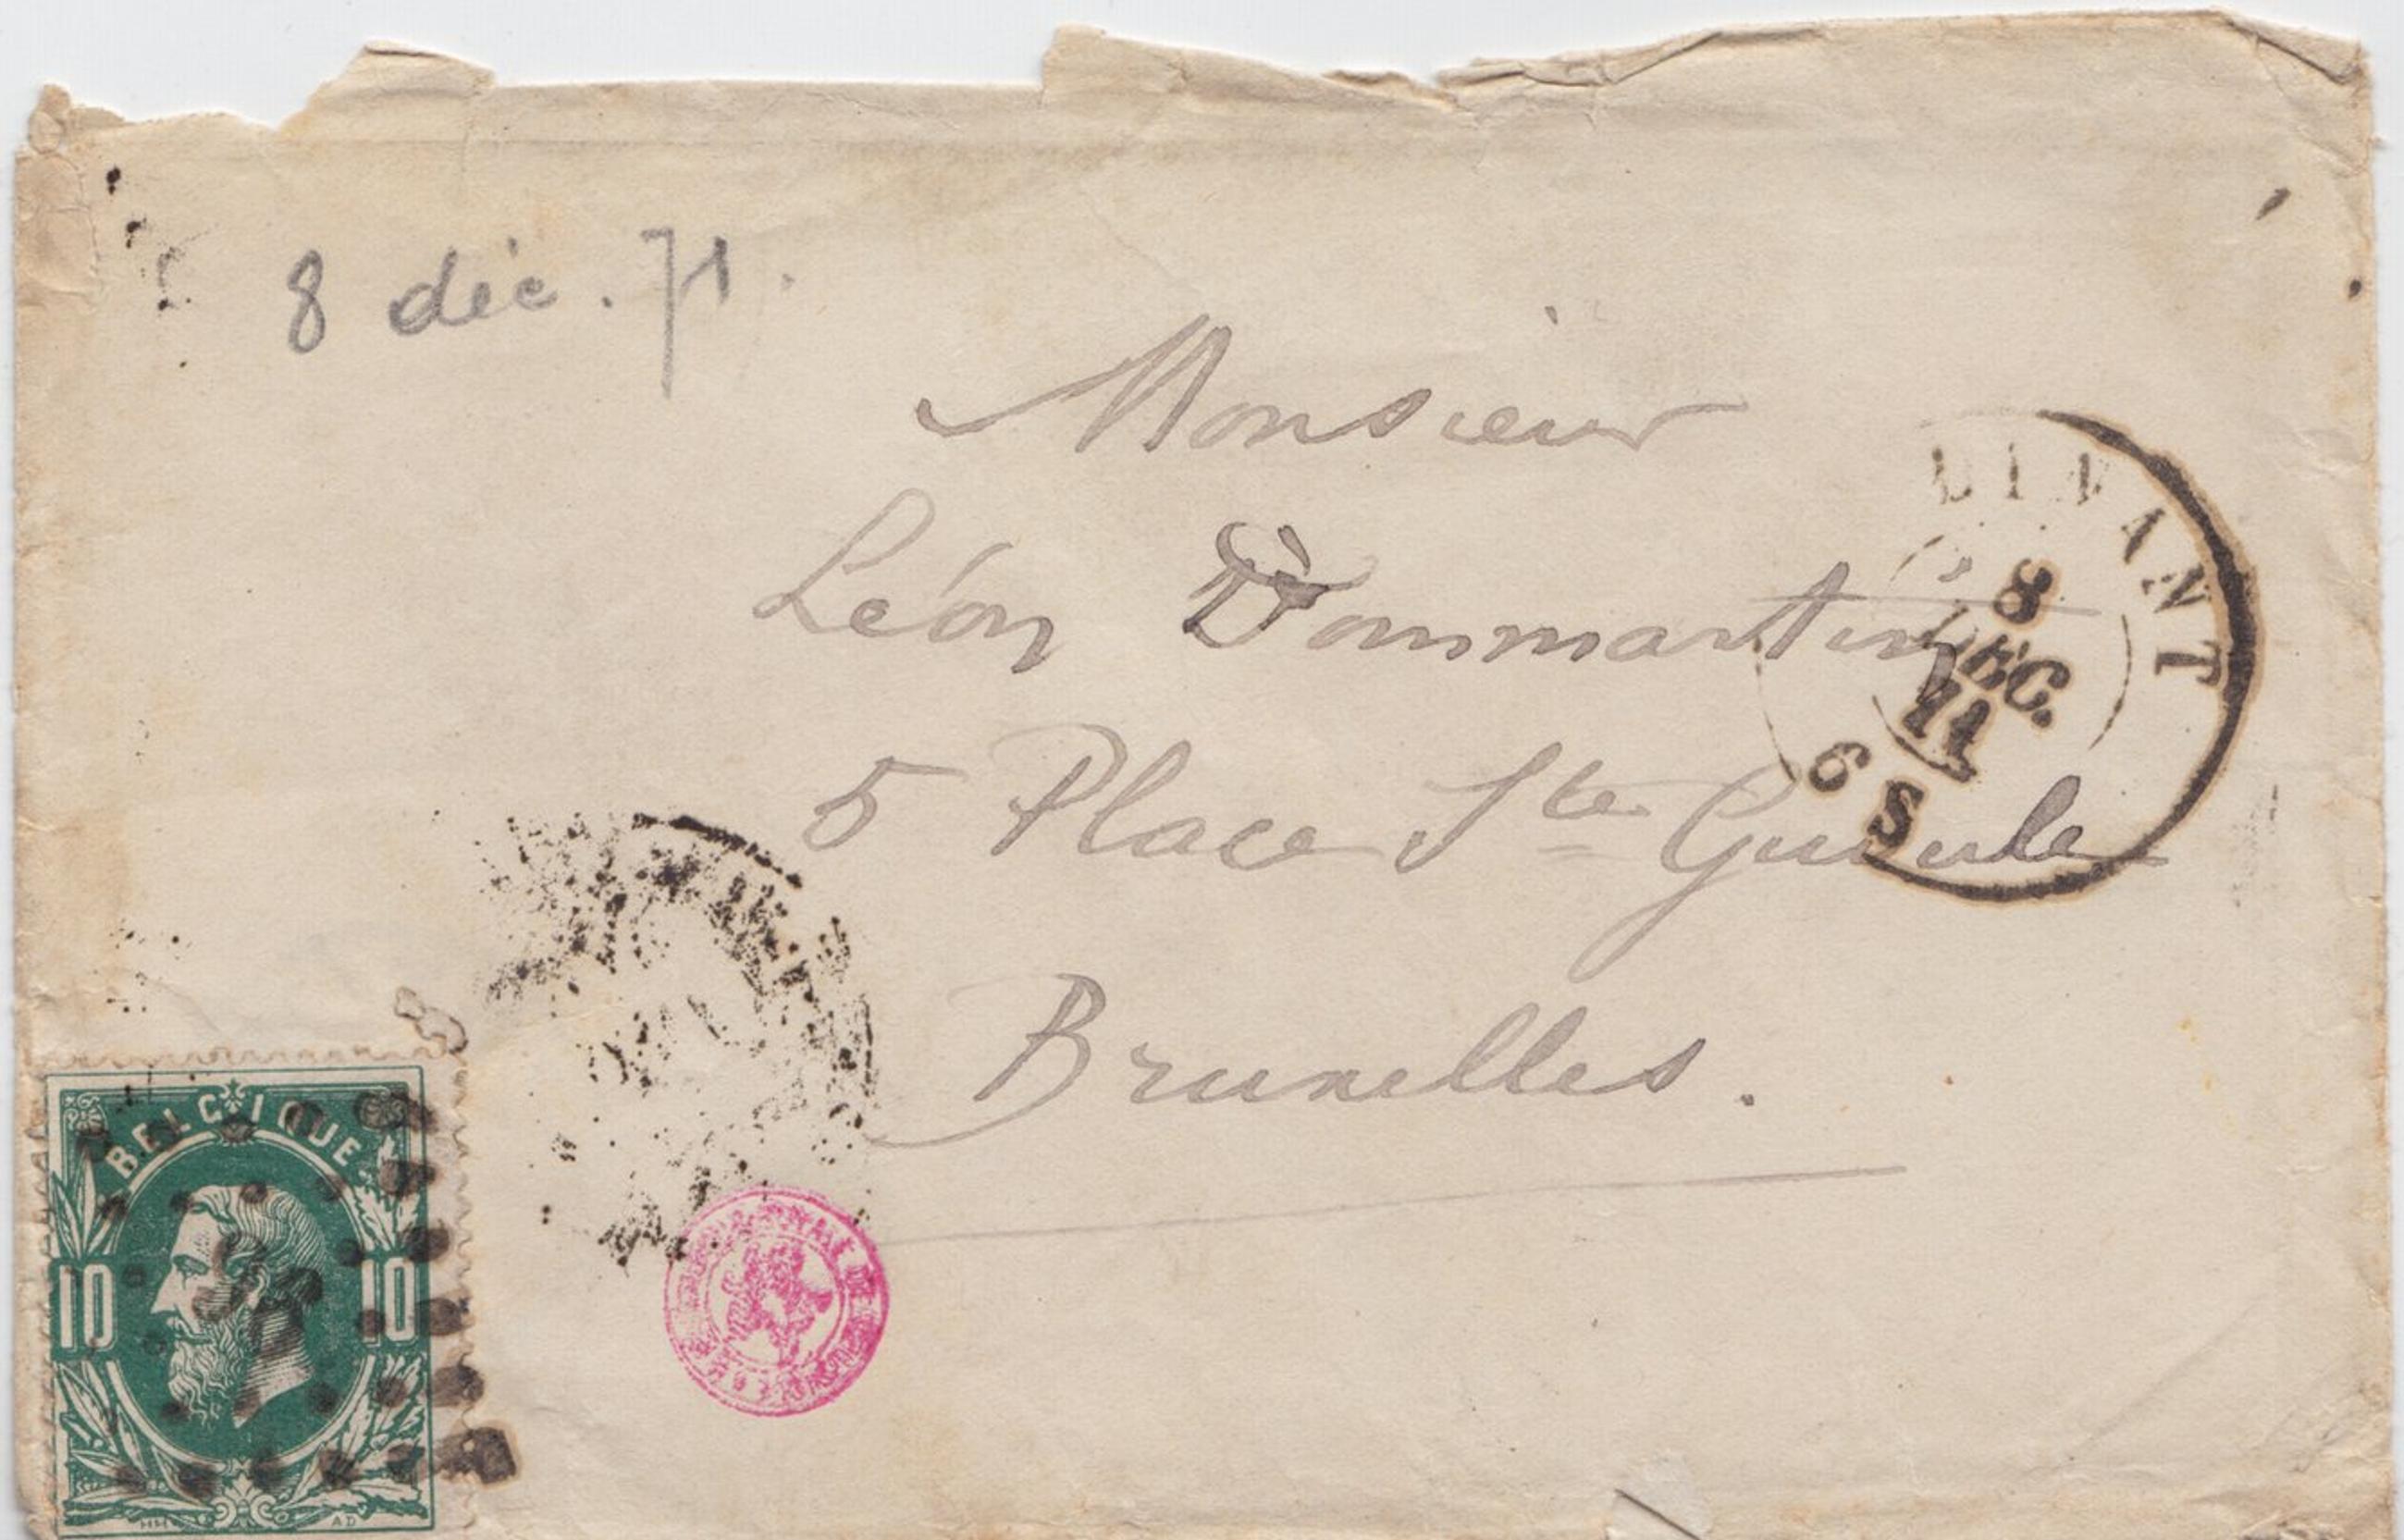 8 déc. 71.
Monsieur
Léon Dommartin
5 Place Ste Gudule
Bruxelles.
DINANT
8
DEC.
71
6 S
BELGIQUE
10 10